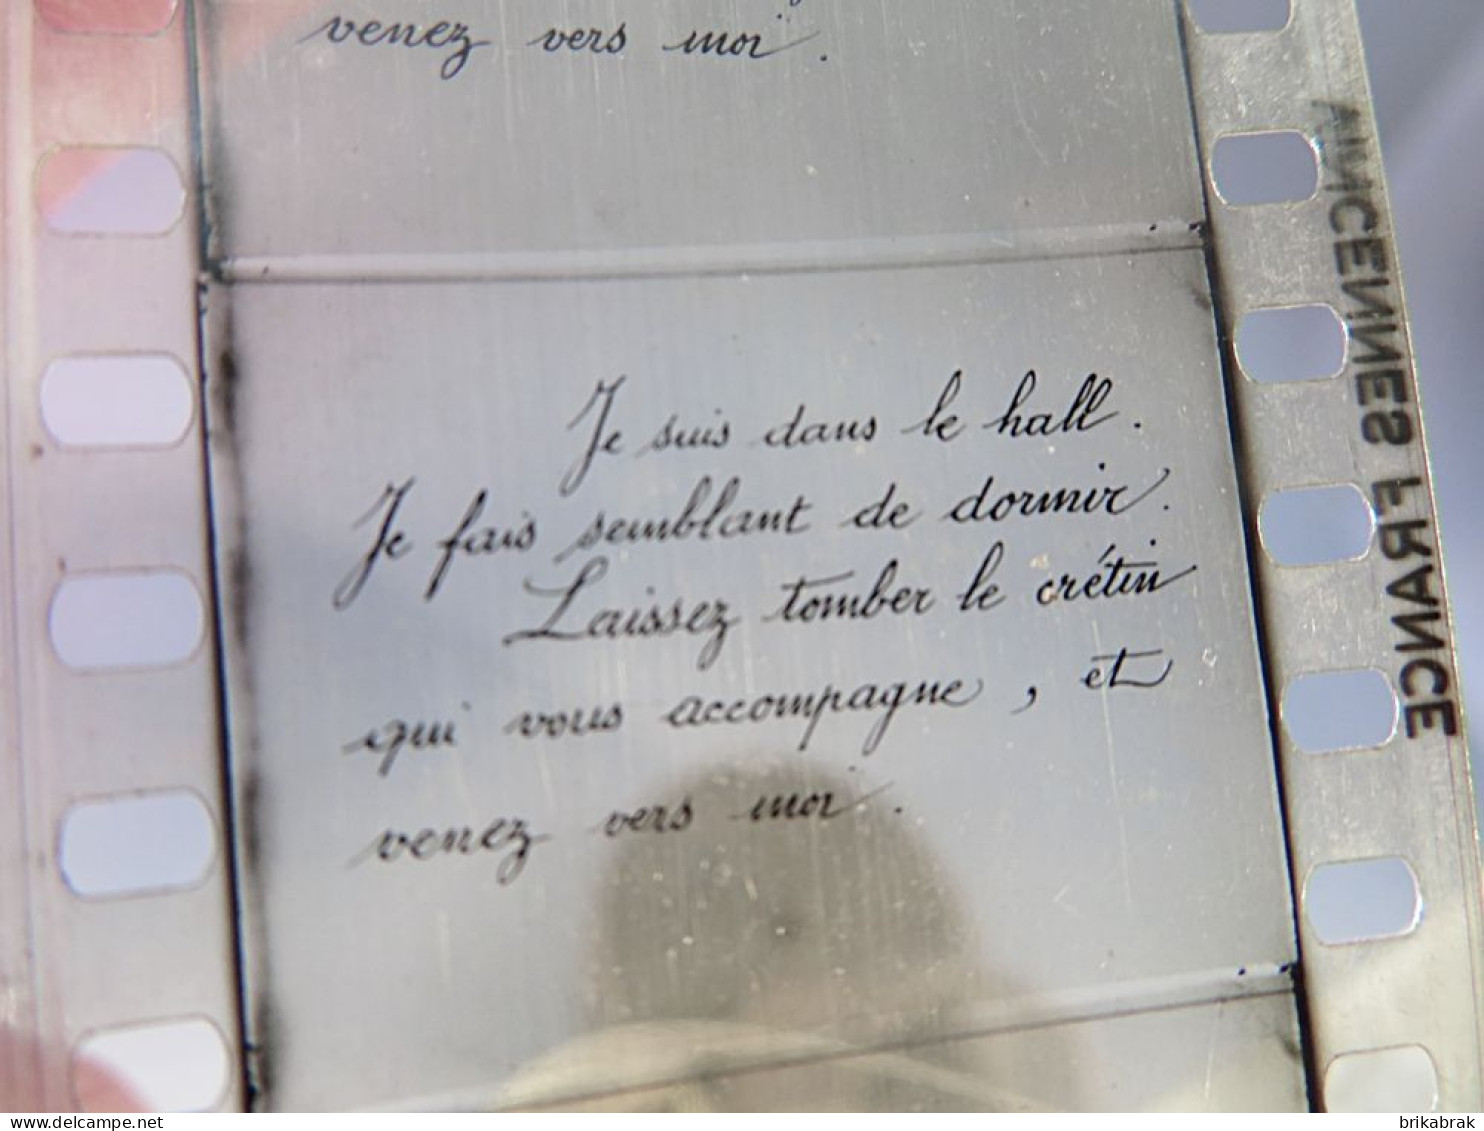 venez vers moi.
Je suis dans le hall.
Je fais semblant de dormir.
Laissez tomber le crétin
qui vous accompagne, et
venez vers moi.
VINCENNES FRANCE
delcampe.net
brikabrak